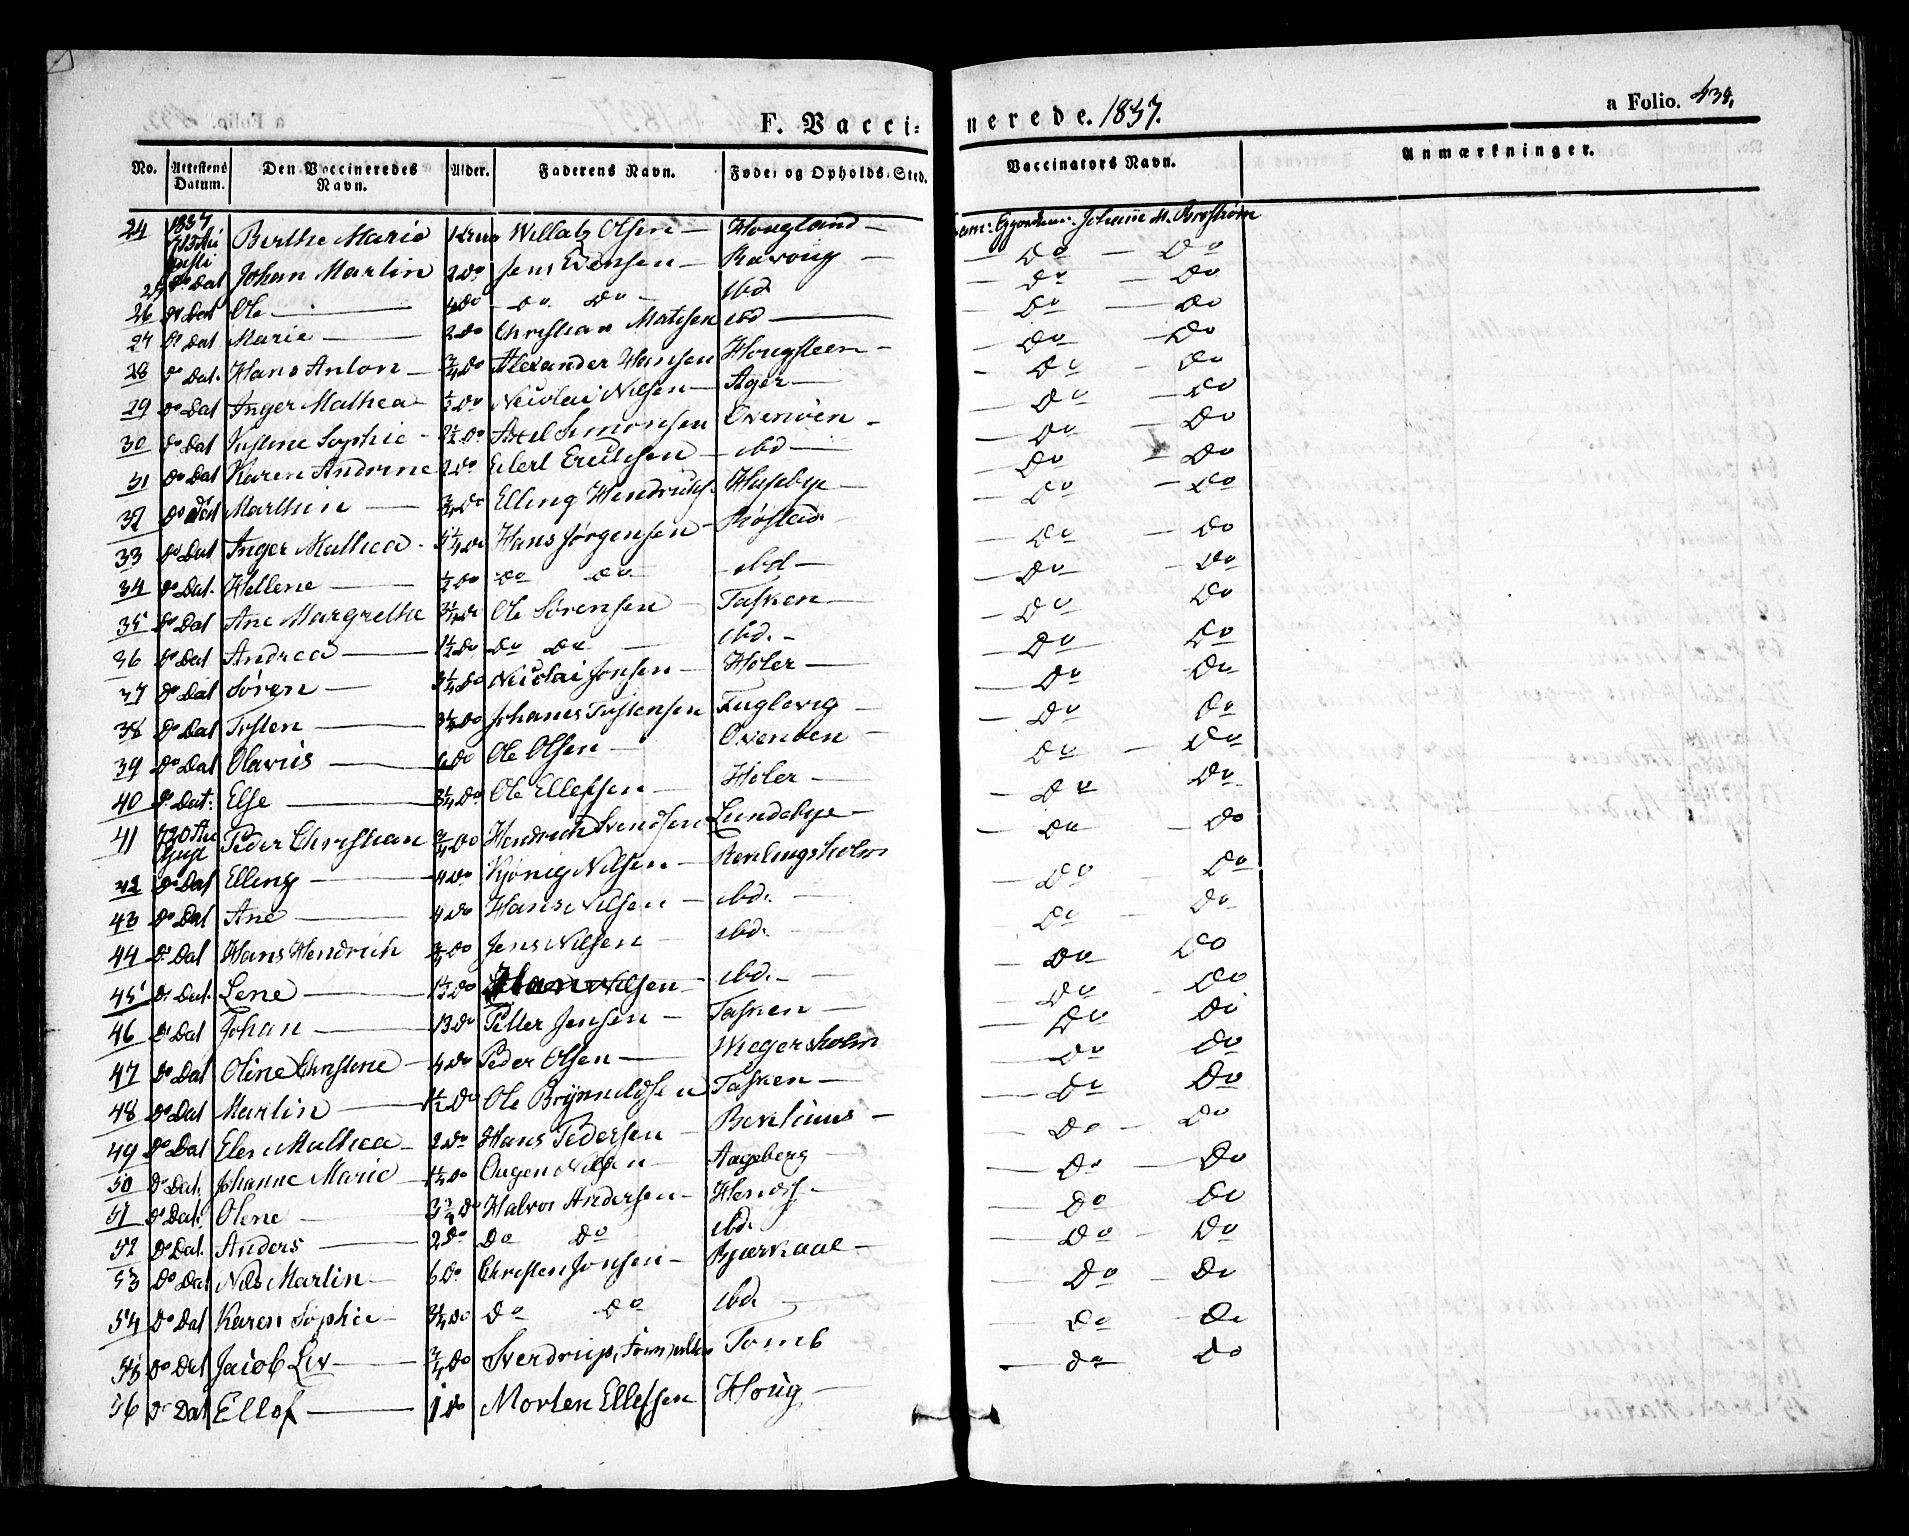 F. Vaccinerede. 1837.
a Folio. 438,
No. Attestens Datum. Den Vaccineredes Navn. Alder. Faderens Navn. Føde- og Opholds-Sted. Vaccinators Navn. Anmærkninger.
24 1837 Berthe Marie Willatz Olsen — Hougland — Johanne M. Brostrøm
25 do Dat Johan Martin 2 do Jens Evensen — Ravoug — Do — Do
26 do Dat Ole — do do — ibd — Do — Do
27 do Dat Marie — 2 do Christian Matisen ibd — Do — Do
28 do Dat. Hans Anton — 3/4 do Alexander Hansen Hougsteen — Do — Do
29 do Dat Inger Mathea — 1/2 do Nicolai Nilsen — Ager — Do — Do
30 do Dat Justine Sophie - 2 1/2 do Axel Simonsen Overøien — Do — Do
31 do Dat Karen Andrine 2 do Eilert Ericksen — ibd — Do — Do
32 do Dat Marthin — 3/4 do Elling Hendrichs. Huseby — Do — Do
33 do Dat Inger Mathea - Hans Jørgensen — Røstad — Do — Do
34 do Dat. Hellene — 1/2 do do do — ibd — Do — Do
35 do Dat Ane Margrethe Ole Sørensen — Tasken — Do — Do
36 do Dat Andrea — 1 1/2 do do do — ibd. — Do — Do
37 do Dat Søren — 3 1/4 do Nicolai Jonsen — Holer — Do — Do
38 do Dat Tosten — 3 1/2 do Johanes Tostensen Fuglevig — Do — Do
39 do Dat Olavus — 6 do Ole Olsen — Overøien — Do — Do
40 do Dat. Else — 3 1/4 do Ole Ellefsen — Holer — Do — Do
41 Peder Christian 3/4 do Hendrich Svendsen Lundebye — Do — Do
42 do Dat Elling — 4 do Kjønig Nilsen — Revlingsholm — Do — Do
43 do Dat Ane — 4 do Hans Nilsen — ibd. — Do — Do
44 do Dat Hans Hendrich do Jens Nilsen — ibd. — Do — Do
45 do Dat. Lene — 1 1/2 do Hans Nilsen — ibd. — Do — Do
46 do Dat Johan — 13 do Petter Jensen — Tasken — Do — Do
47 do Dat Oline Christine — 4 do Peder Olsen — Megersholm — Do — Do
48 do Dat Martin — 1 1/2 do Ole Brynnildsen Tasken — Do — Do
49 do Dat Elen Mathea — 2 do Hans Pedersen — Do — Do
50 do Dat. Johanne Marie 1 1/2 do Ougen Nilsen — Aageberg — Do — Do
51 do Dat. Olene — do Halvor Andersen — Do — Do
52 do Dat. Anders — 2 do do do ibd. — Do — Do
53 do Dat Nils Martin — 6 do Christen Jonsen — Bjørkaae — Do — Do
54 do Dat Karen Sophie — 3/4 do do do ibd. — Do — Do
55 do Dat Jacob Liv — 3/4 do Sverdrup, Tomb — Do — Do
56 do Dat Ellef — 1 do Morten Ellefsen Houg —